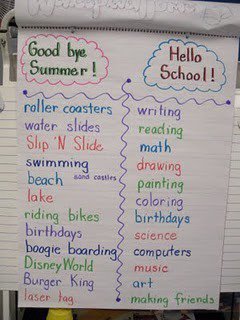 Good bye
Summer!
roller coasters
water slides
Slip 'N Slide
swimming
beach sand castles
lake
riding bikes
birthdays
boogie boarding
Disney World
Burger King
laser tag
Hello
School!
writing
reading
math
drawing
painting
coloring
birthdays
science
computers
music
art
making friends